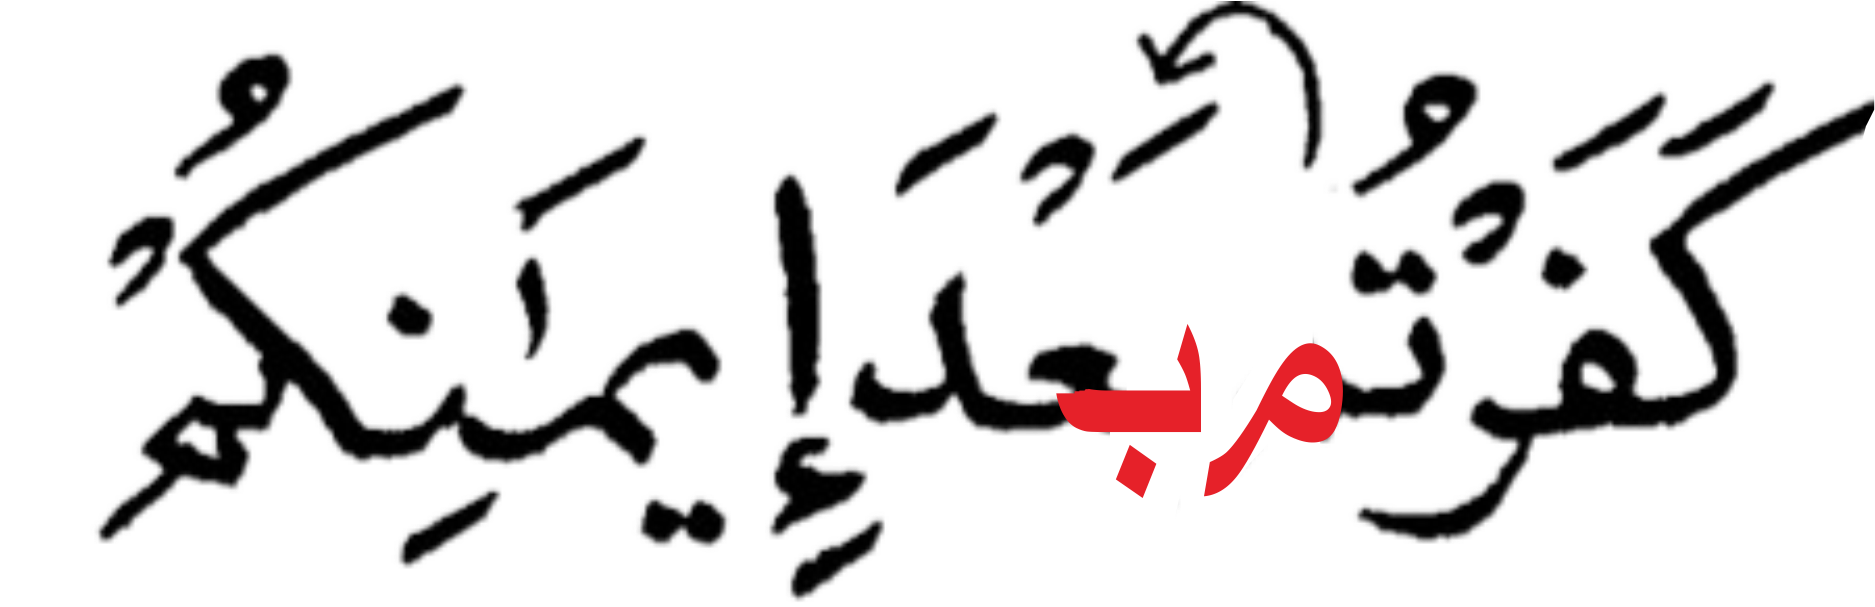 كَفَرْتُم بَعْدَ إِيمَٰنِكُمْ